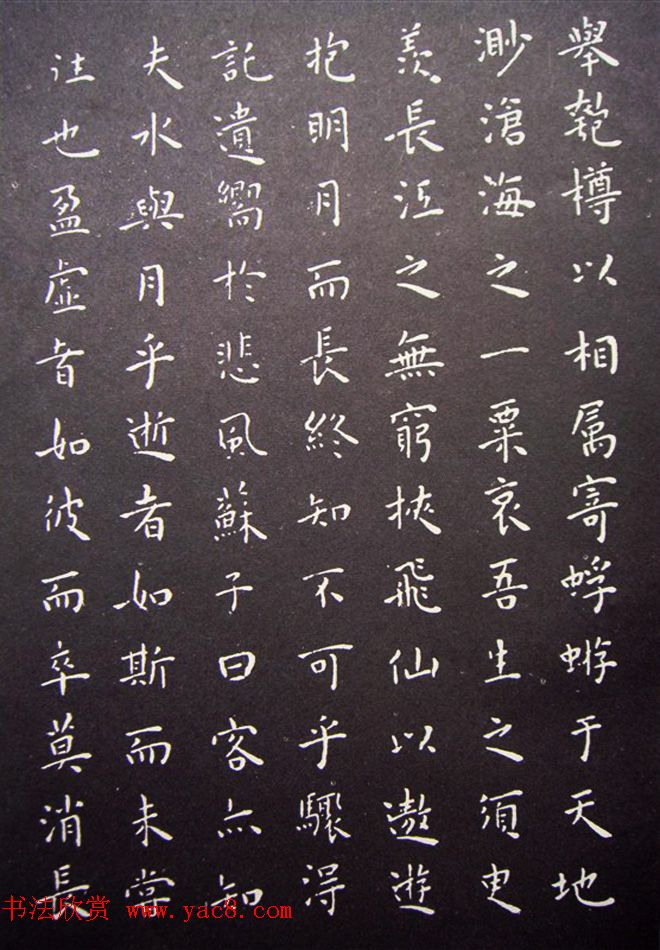 舉匏樽以相属寄蜉蝣于天地
渺滄海之一粟哀吾生之須臾
羨長江之無窮挾飛仙以遨遊
抱明月而長終知不可乎驟得
託遺響於悲風蘇子曰客亦知
夫水與月乎逝者如斯而未嘗
往也盈虛者如彼而卒莫消長
书法欣赏 www.yac8.com